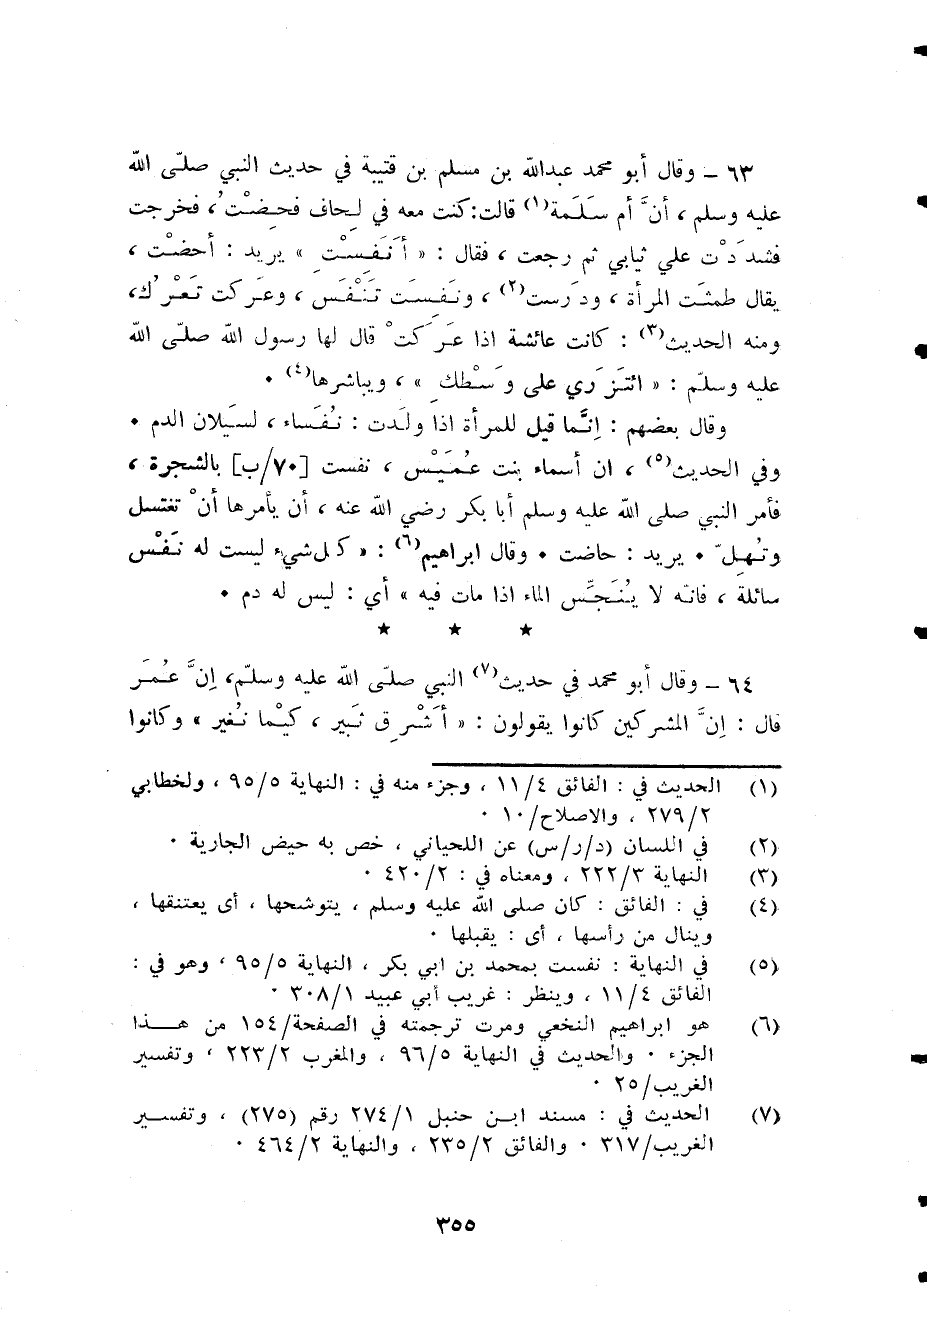 ٦٣ ـ وقال أبو محمد عبدالله بن مسلم بن قتيبة في حديث النبي صلّى الله
عليه وسلم ، أنَّ أم سَلَمة(١) قالت: كنت معه في لِحاف فحِضْتُ ، فخرجت
فشدَدْت علي ثيابي ثم رجعت ، فقال : « أَنَفِسْتِ » يريد : أحضْت ،
يقال طمثَت المرأة ، ودَرست(٢) ، ونَفِسَت تَنْفَس ، وعَركت تَعْرُك ،
ومنه الحديث(٣) : كانت عائشة اذا عَرَكتْ قال لها رسول الله صلّى الله
عليه وسلّم : « ائتَزَري على وَسْطِك » ، ويباشرها(٤) .
وقال بعضهم : إِنَّما قيل للمرأة اذا ولَدت : نُفَساء ، لسَيَلان الدم .
وفي الحديث(٥) ، ان أسماء بنت عُمَيْس ، نفست [٧٠/ب] بالشجرة ،
فأمر النبي صلى الله عليه وسلم أبا بكر رضي الله عنه ، أن يأمرها أنْ تغتسل
وتُهِلّ . يريد : حاضت . وقال ابراهيم(٦) : « كل شيء ليست له نَفْس
سائلة ، فانّه لا يُنَجِّس الماء اذا مات فيه » أي : ليس له دم .
★ ★ ★
٦٤ ـ وقال أبو محمد في حديث(٧) النبي صلّى الله عليه وسلّم، إنَّ عُمَر
قال : إنَّ المشركين كانوا يقولون : « أَشْرِق ثَبِير ، كَيْما نُغير » وكانوا
(١) الحديث في : الفائق ١١/٤ ، وجزء منه في : النهاية ٩٥/٥ ، ولخطابي
٢٧٩/٢ ، والاصلاح/١٠ .
(٢) في اللسان (د/ر/س) عن اللحياني ، خص به حيض الجارية .
(٣) النهاية ٢٢٢/٣ ، ومعناه في : ٤٢٠/٢ .
(٤) في : الفائق : كان صلى الله عليه وسلم ، يتوشحها ، أى يعتنقها ،
وينال من رأسها ، أى : يقبلها .
(٥) في النهاية : نفست بمحمد بن ابي بكر ، النهاية ٩٥/٥ ، وهو في :
الفائق ١١/٤ ، وينظر : غريب أبي عبيد ٣٠٨/١ .
(٦) هو ابراهيم النخعي ومرت ترجمته في الصفحة/١٥٤ من هـذا
الجزء . والحديث في النهاية ٩٦/٥ ، والمغرب ٢٢٣/٢ ، وتفسير
الغريب/٢٥ .
(٧) الحديث في : مسند ابـن حنبل ٢٧٤/١ رقم (٢٧٥) ، وتفسـير
الغريب/٣١٧ . والفائق ٢٣٥/٢ ، والنهاية ٤٦٤/٢ .
٣٥٥